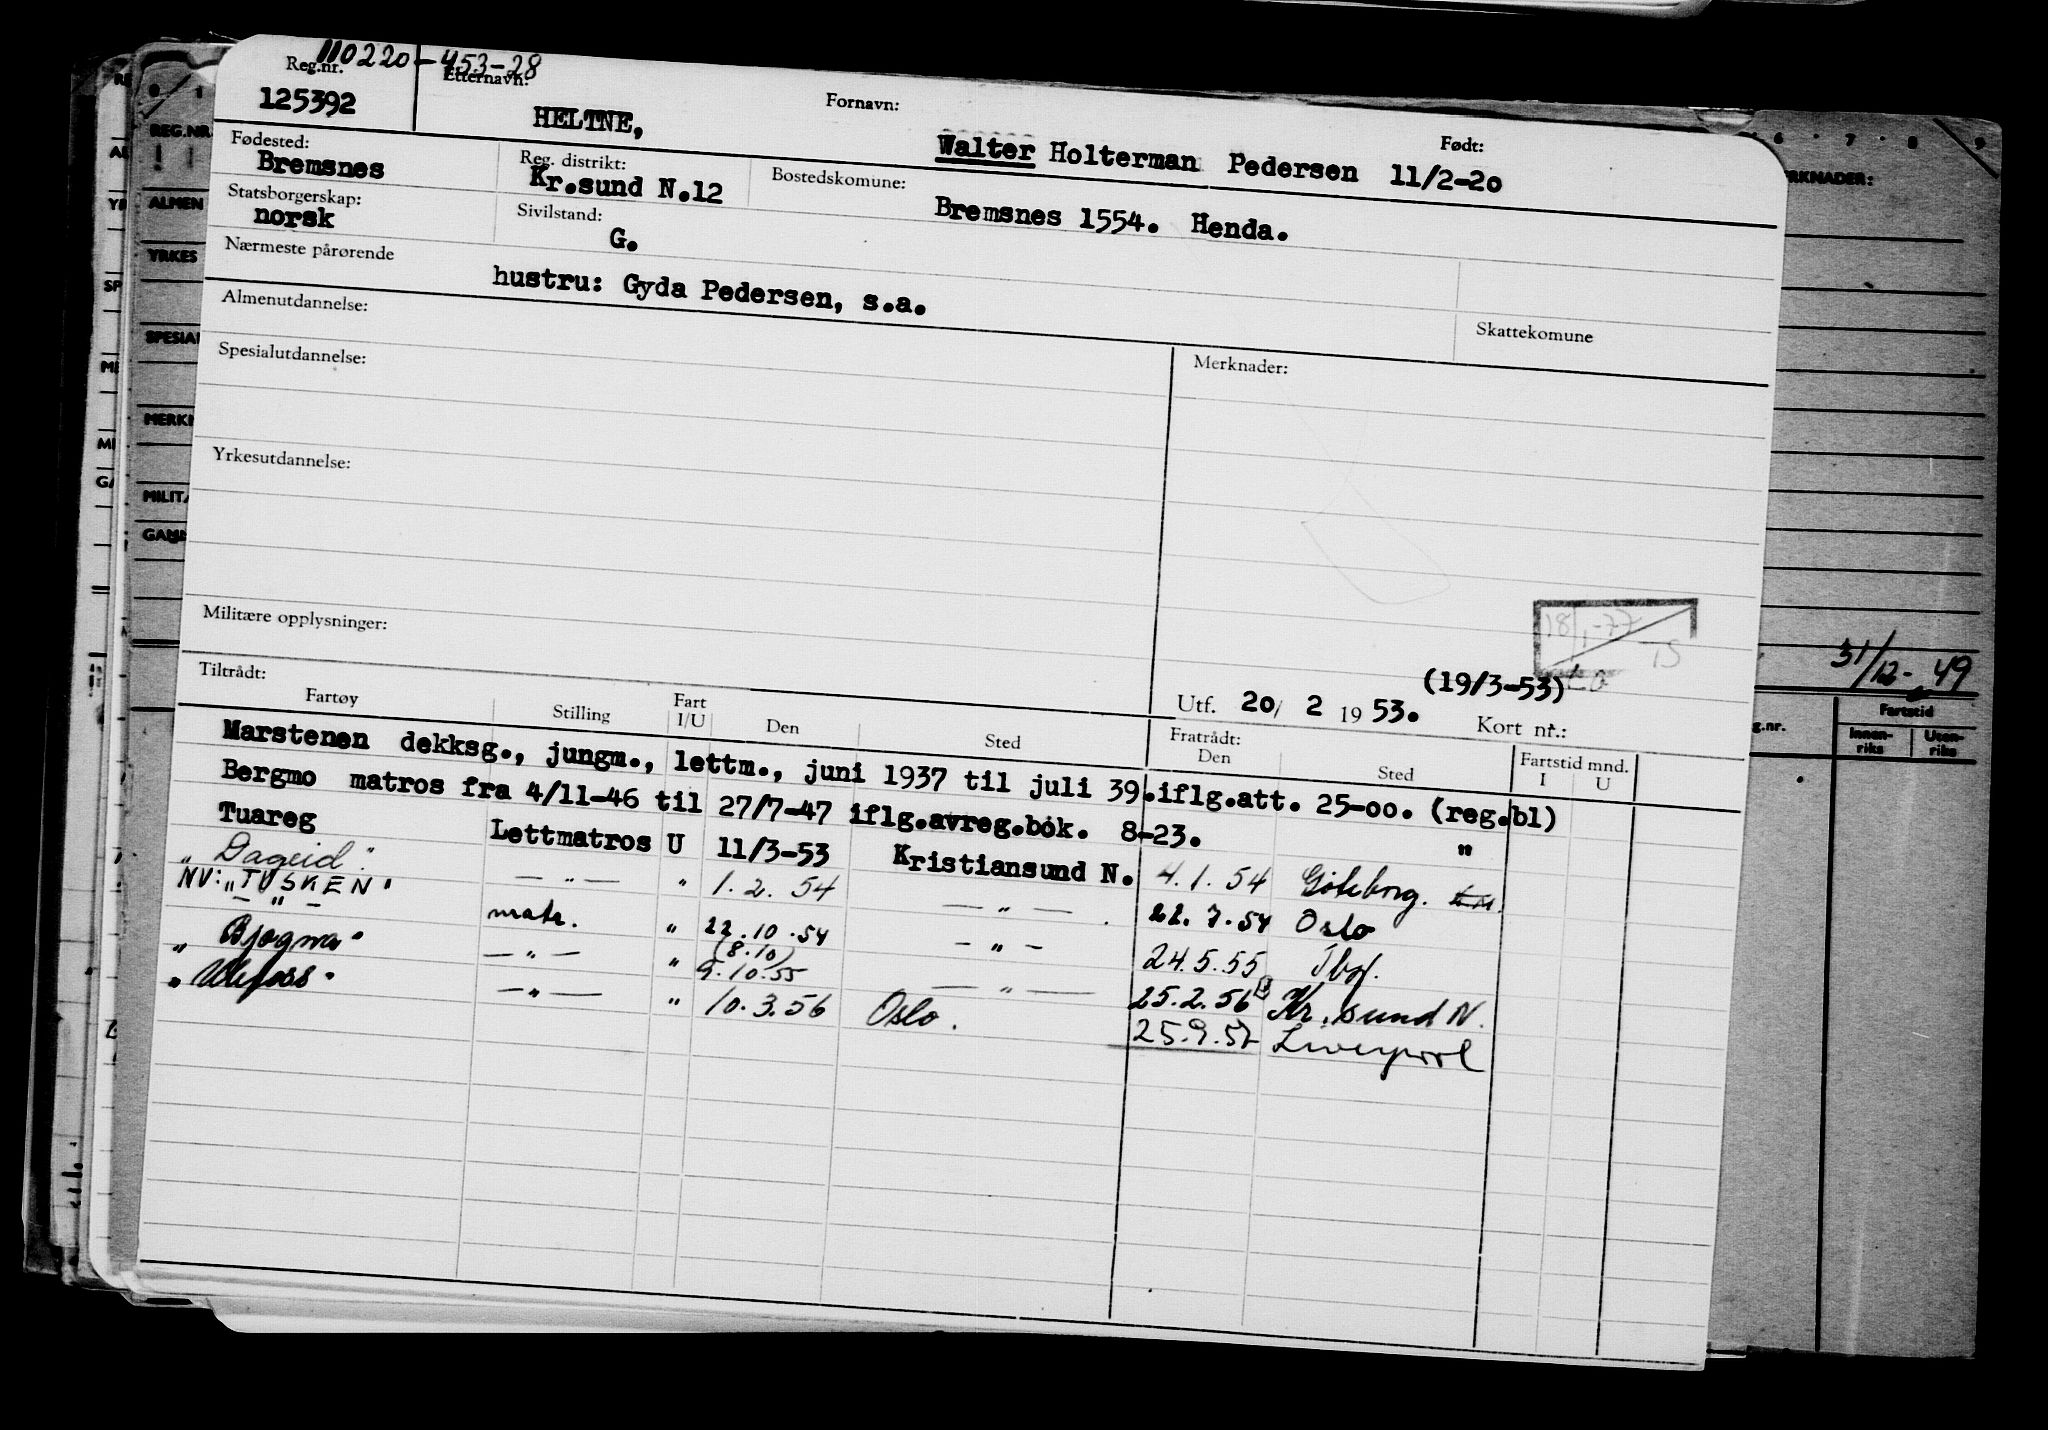 110220-453-28
Reg.nr. Etternavn: Fornavn: Født:
125392 HELTNE, Walter Holterman Pedersen 11/2-20
Fødested: Reg. distrikt: Bostedskomune:
Bremsnes Kr.sund N.12 Bremsnes 1554. Henda.
Statsborgerskap: Sivilstand:
norsk G.
Nærmeste pårørende
hustru: Gyda Pedersen, s.a.
Almenutdannelse: Skattekomune
Spesialutdannelse: Merknader:
Yrkesutdannelse:
18/1-77
TS
Militære opplysninger:
(19/3-53)
Utf. 20/ 2 1953. Kort nr.:
Tiltrådt: Fratrådt: Fartstid mnd.
Fartøy Stilling Fart I/U Den Sted Den Sted I U
Marstenen dekksg., jungm., lettm., juni 1937 til juli 39.iflg.att. 25-00. (reg.bl)
Bergmo matros fra 4/11-46 til 27/7-47 iflg.avreg.bok. 8-23. "
Tuareg Lettmatros U 11/3-53 Kristiansund N. 4.1.54 Göteborg.
"Dageid" — " — " 1.2.54 — " — 22.7.54 Oslo
NV: "TUSKEN"
— " — matr. " 22.10.54 — " — 24.5.55 Tbg.
(8.10)
"Bjogna" — " — " 9.10.55 — " — 25.2.56 Kr.sund N.
"Ulefoss" — " — " 10.3.56 Oslo. 25.9.57 Liverpool
REG.NR.
ALMEN
YRKES
SPESIAL
MERKN
MILIT
6 7 8 9
RKNADER:
31/12-49
g.nr. Fartstid
Innen-riks Uten-riks